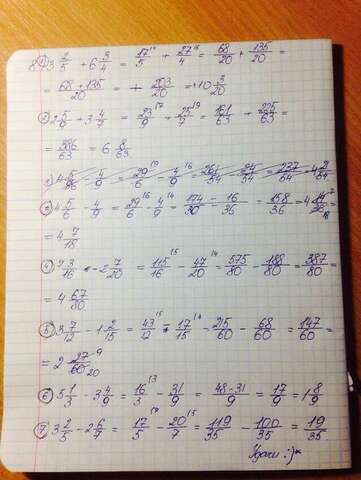 841) 3 2/5 + 6 3/4 = 17/5 + 27/4 = 68/20 + 135/20 =
= 68+135/20 = + 203/20 = 10 3/20
2) 2 5/9 + 3 4/7 = 23/9 + 25/7 = 161/63 + 225/63 =
= 386/63 = 6 8/63
3) 4 5/6 - 4/9 = 29/6 - 4/9 = 174/36 - 16/36 = 158/36 = 4 14/36 =
= 4 7/18
4) 7 3/16 - 2 7/20 = 115/16 - 47/20 = 575/80 - 188/80 = 387/80 =
= 4 67/80
5) 3 7/12 - 1 2/15 = 43/12 - 17/15 = 215/60 - 68/60 = 147/60 =
= 2 27/60 9/20
6) 5 1/3 - 3 4/9 = 16/3 - 31/9 = 48-31/9 = 17/9 = 1 8/9
7) 3 2/5 - 2 6/7 = 17/5 - 20/7 = 119/35 - 100/35 = 19/35.
Удачи :)*